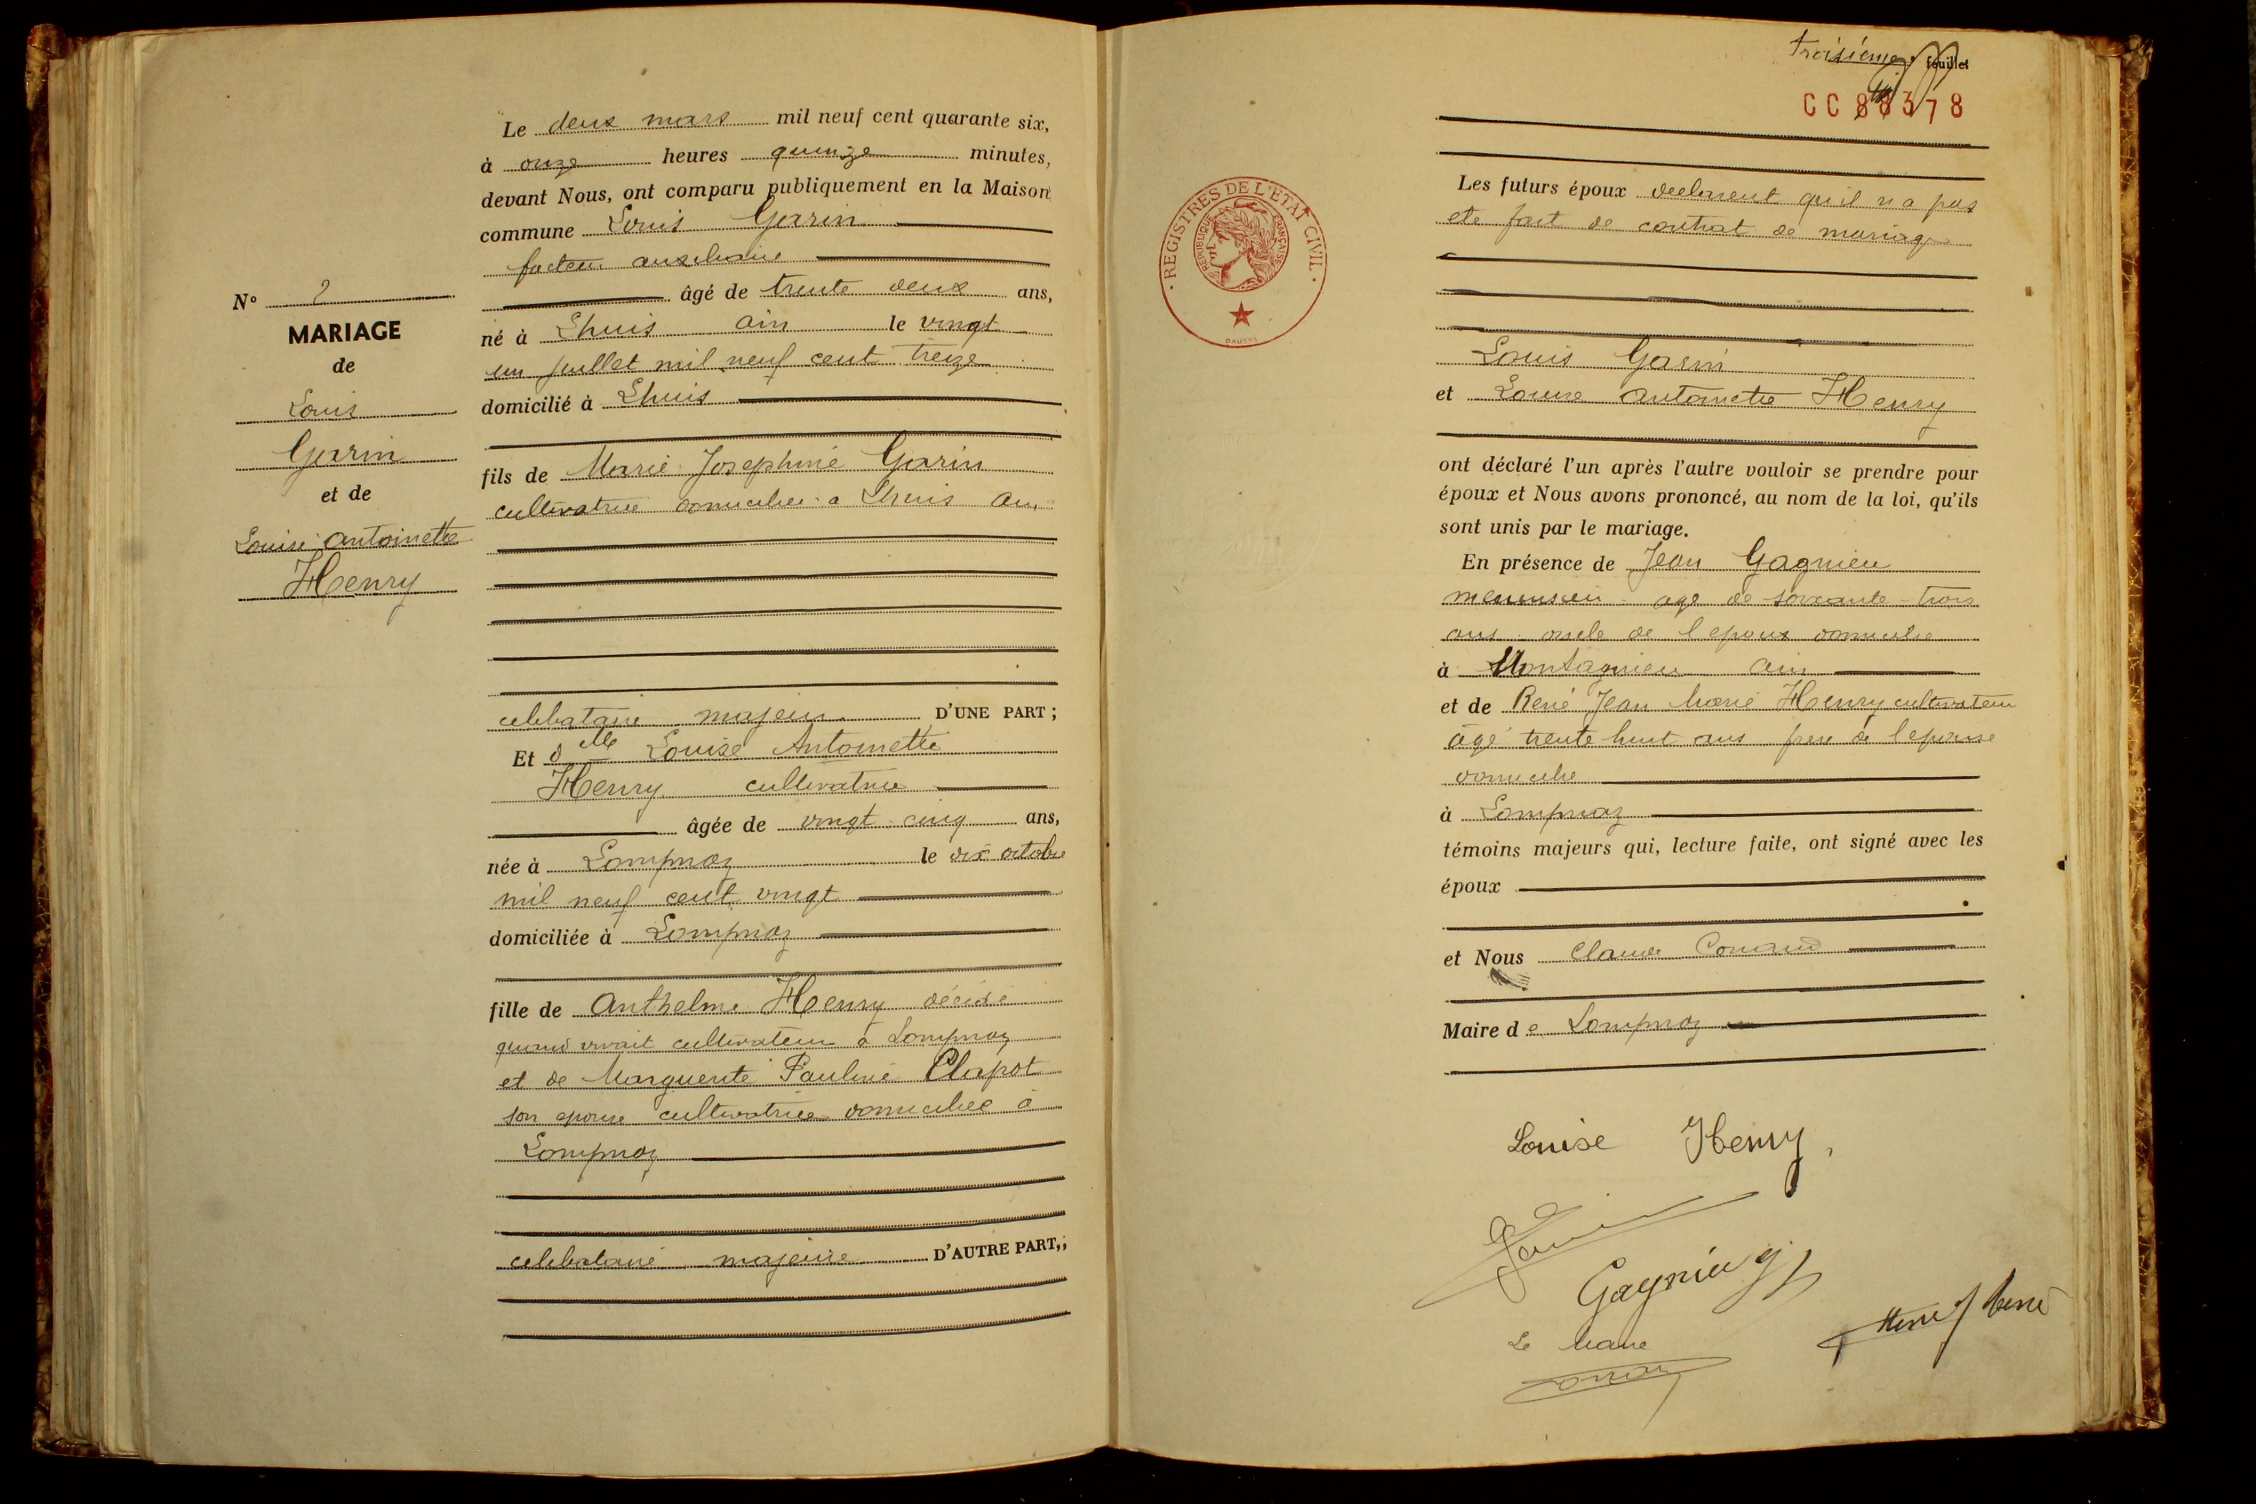 N° 2
MARIAGE
de
Louis
Garin
et de
Louise Antoinette
Henry
Le deux mars mil neuf cent quarante six,
à onze heures quinze minutes,
devant Nous, ont comparu publiquement en la Maison
commune Louis Garin
facteur auxiliaire
âgé de trente deux ans,
né à Lhuis Ain le vingt
un juillet mil neuf cent treize
domicilié à Lhuis
fils de Marie Josephine Garin
cultivatrice domiciliée a Lhuis Ain
celibataire majeur D'UNE PART ;
Et dlle Louise Antoinette
Henry cultivatrice
âgée de vingt cinq ans,
née à Lompnaz le dix octobre
mil neuf cent vingt
domiciliée à Lompnaz
fille de Anthelme Henry décédé
quand vivait cultivateur a Lompnaz
et de Marguerite Pauline Clapot
son epouse cultivatrice domiciliée à
Lompnaz
celibataire majeure D'AUTRE PART,;
troisième feuillet
CC 88378
REGISTRES DE L'ETAT CIVIL
REPUBLIQUE FRANÇAISE
Les futurs époux declarent qu'il n'a pas
ete fait de contrat de mariage
Louis Garin
et Louise Antoinette Henry
ont déclaré l'un après l'autre vouloir se prendre pour
époux et Nous avons prononcé, au nom de la loi, qu'ils
sont unis par le mariage.
En présence de Jean Gagnieu
menuisier age de soixante trois
ans oncle de l'epoux domicilie
à Montagnieu Ain
et de René Jean Marie Henry cultivateur
âgé trente huit ans frere de l'epouse
domicilie
à Lompnaz
témoins majeurs qui, lecture faite, ont signé avec les
époux
et Nous Claude Conand
Maire de Lompnaz
Louise Henry
Garin
Gagnieu J
Le Maire
Conand
Henry René